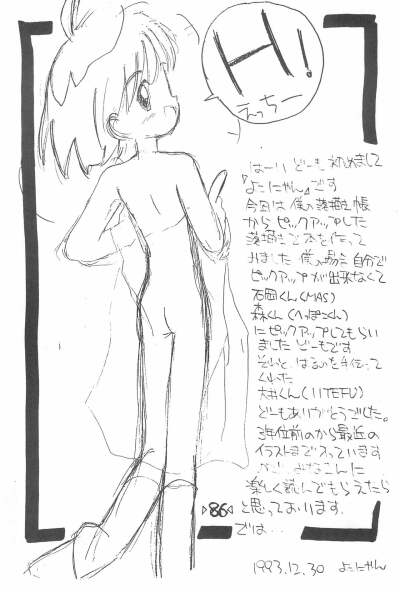 H!
えっちー
はーい どーも 初めまして
『よこにゃん』です
今回は僕の落描き帳
からピックアップした
落描きで本を作って
みました 僕の場合 自分で
ピックアップが出来なくて
石岡くん(MAS)
森くん(へっぽこくん)
にピックアップしてもらい
ました どーもです
それと、はるのを手伝って
くれた
大井くん(11TEFU)
どーもありがとうでした。
3年位前のから最近の
イラストまで入っています
みなさんに
楽しく読んでもらえたら
と思っております。
では…
▷86◁
1993.12.30 よこにゃん